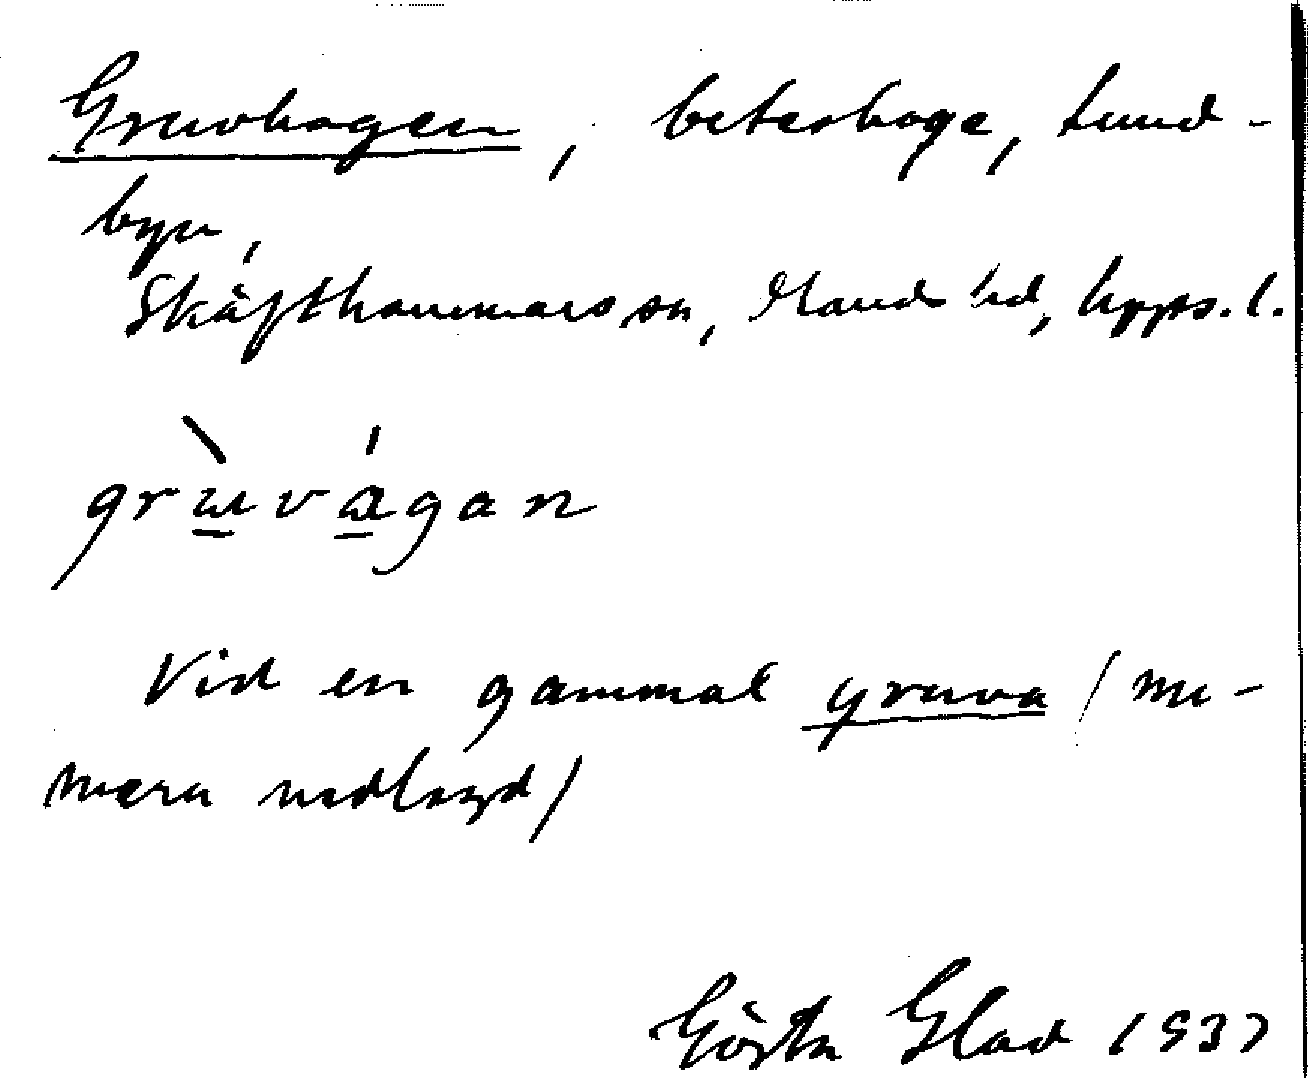 Gruvhagen, beteshage, Lund-
byn,
Skäfthammars sn, Olands hd, Upps. l.
grùvágan
Vid en gammal gruva (nu-
mera nedlagd)
Gösta Glad 1937